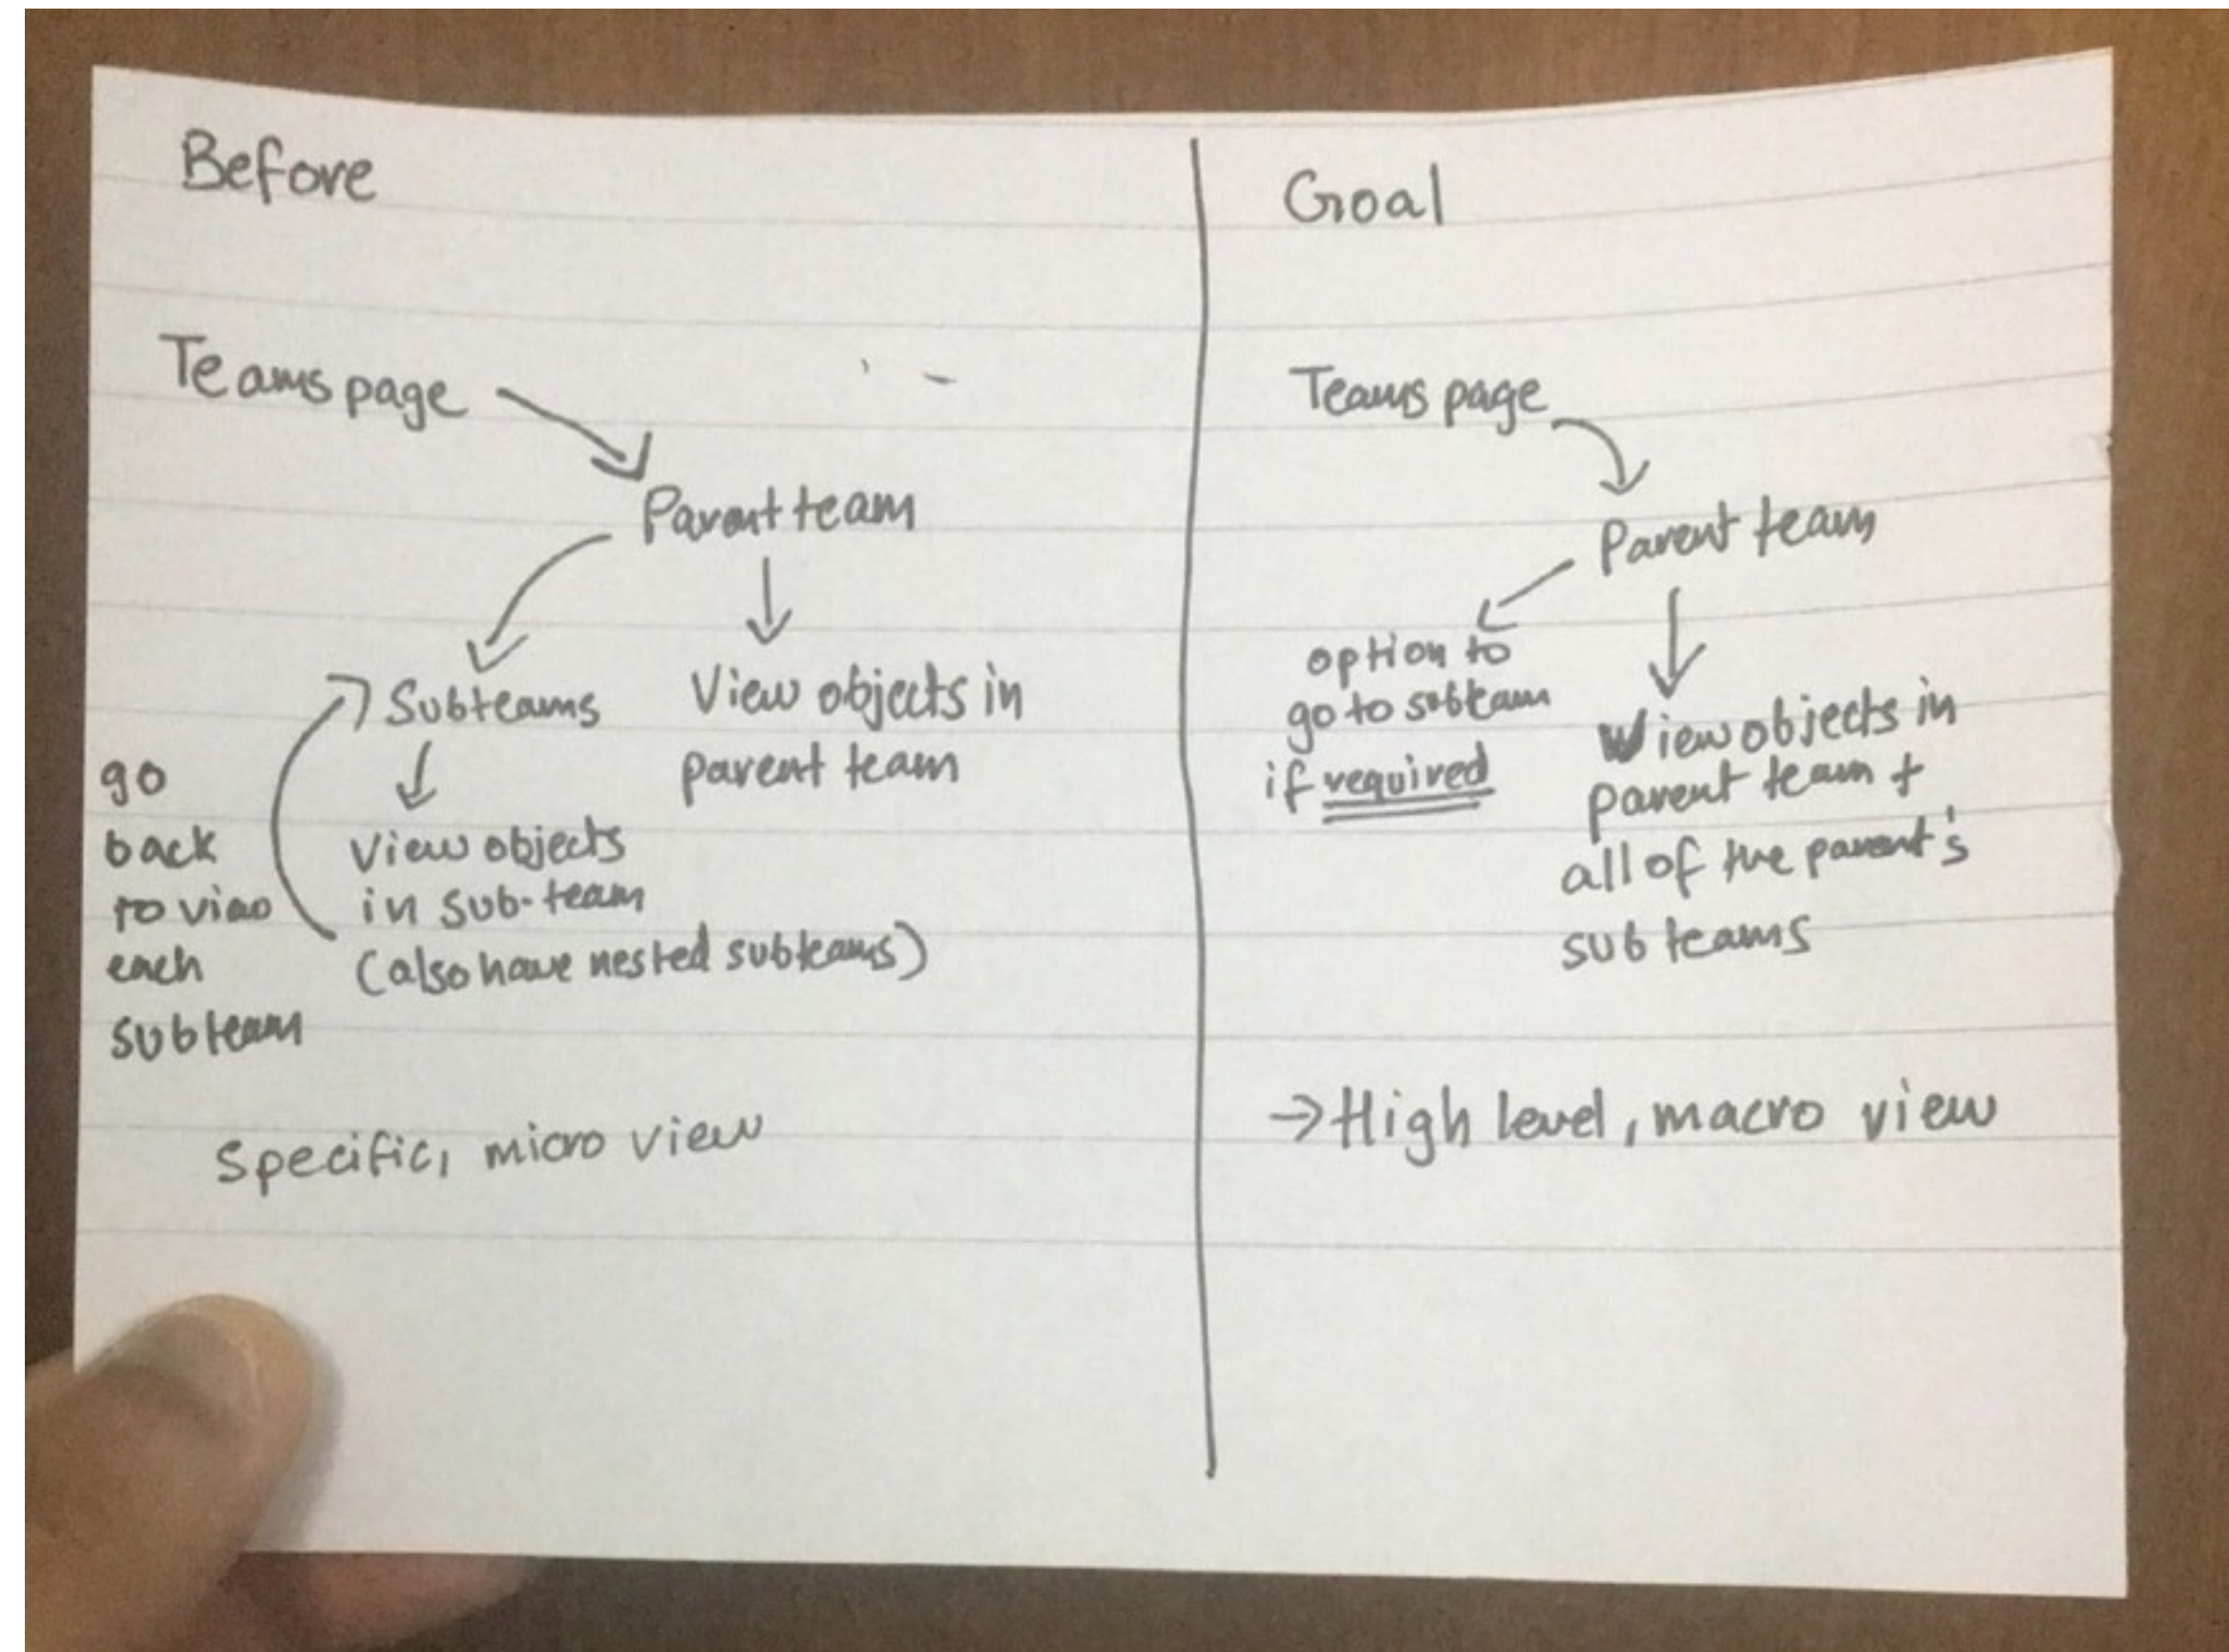 Before
Teams page
Parent team
Subteams
View objects in
parent team
go
back
to view
each
subteam
View objects
in sub-team
(also have nested subteams)
Specific, micro view
Goal
Teams page
Parent team
option to
go to subteam
if required
View objects in
parent team +
all of the parent's
sub teams
→ High level, macro view